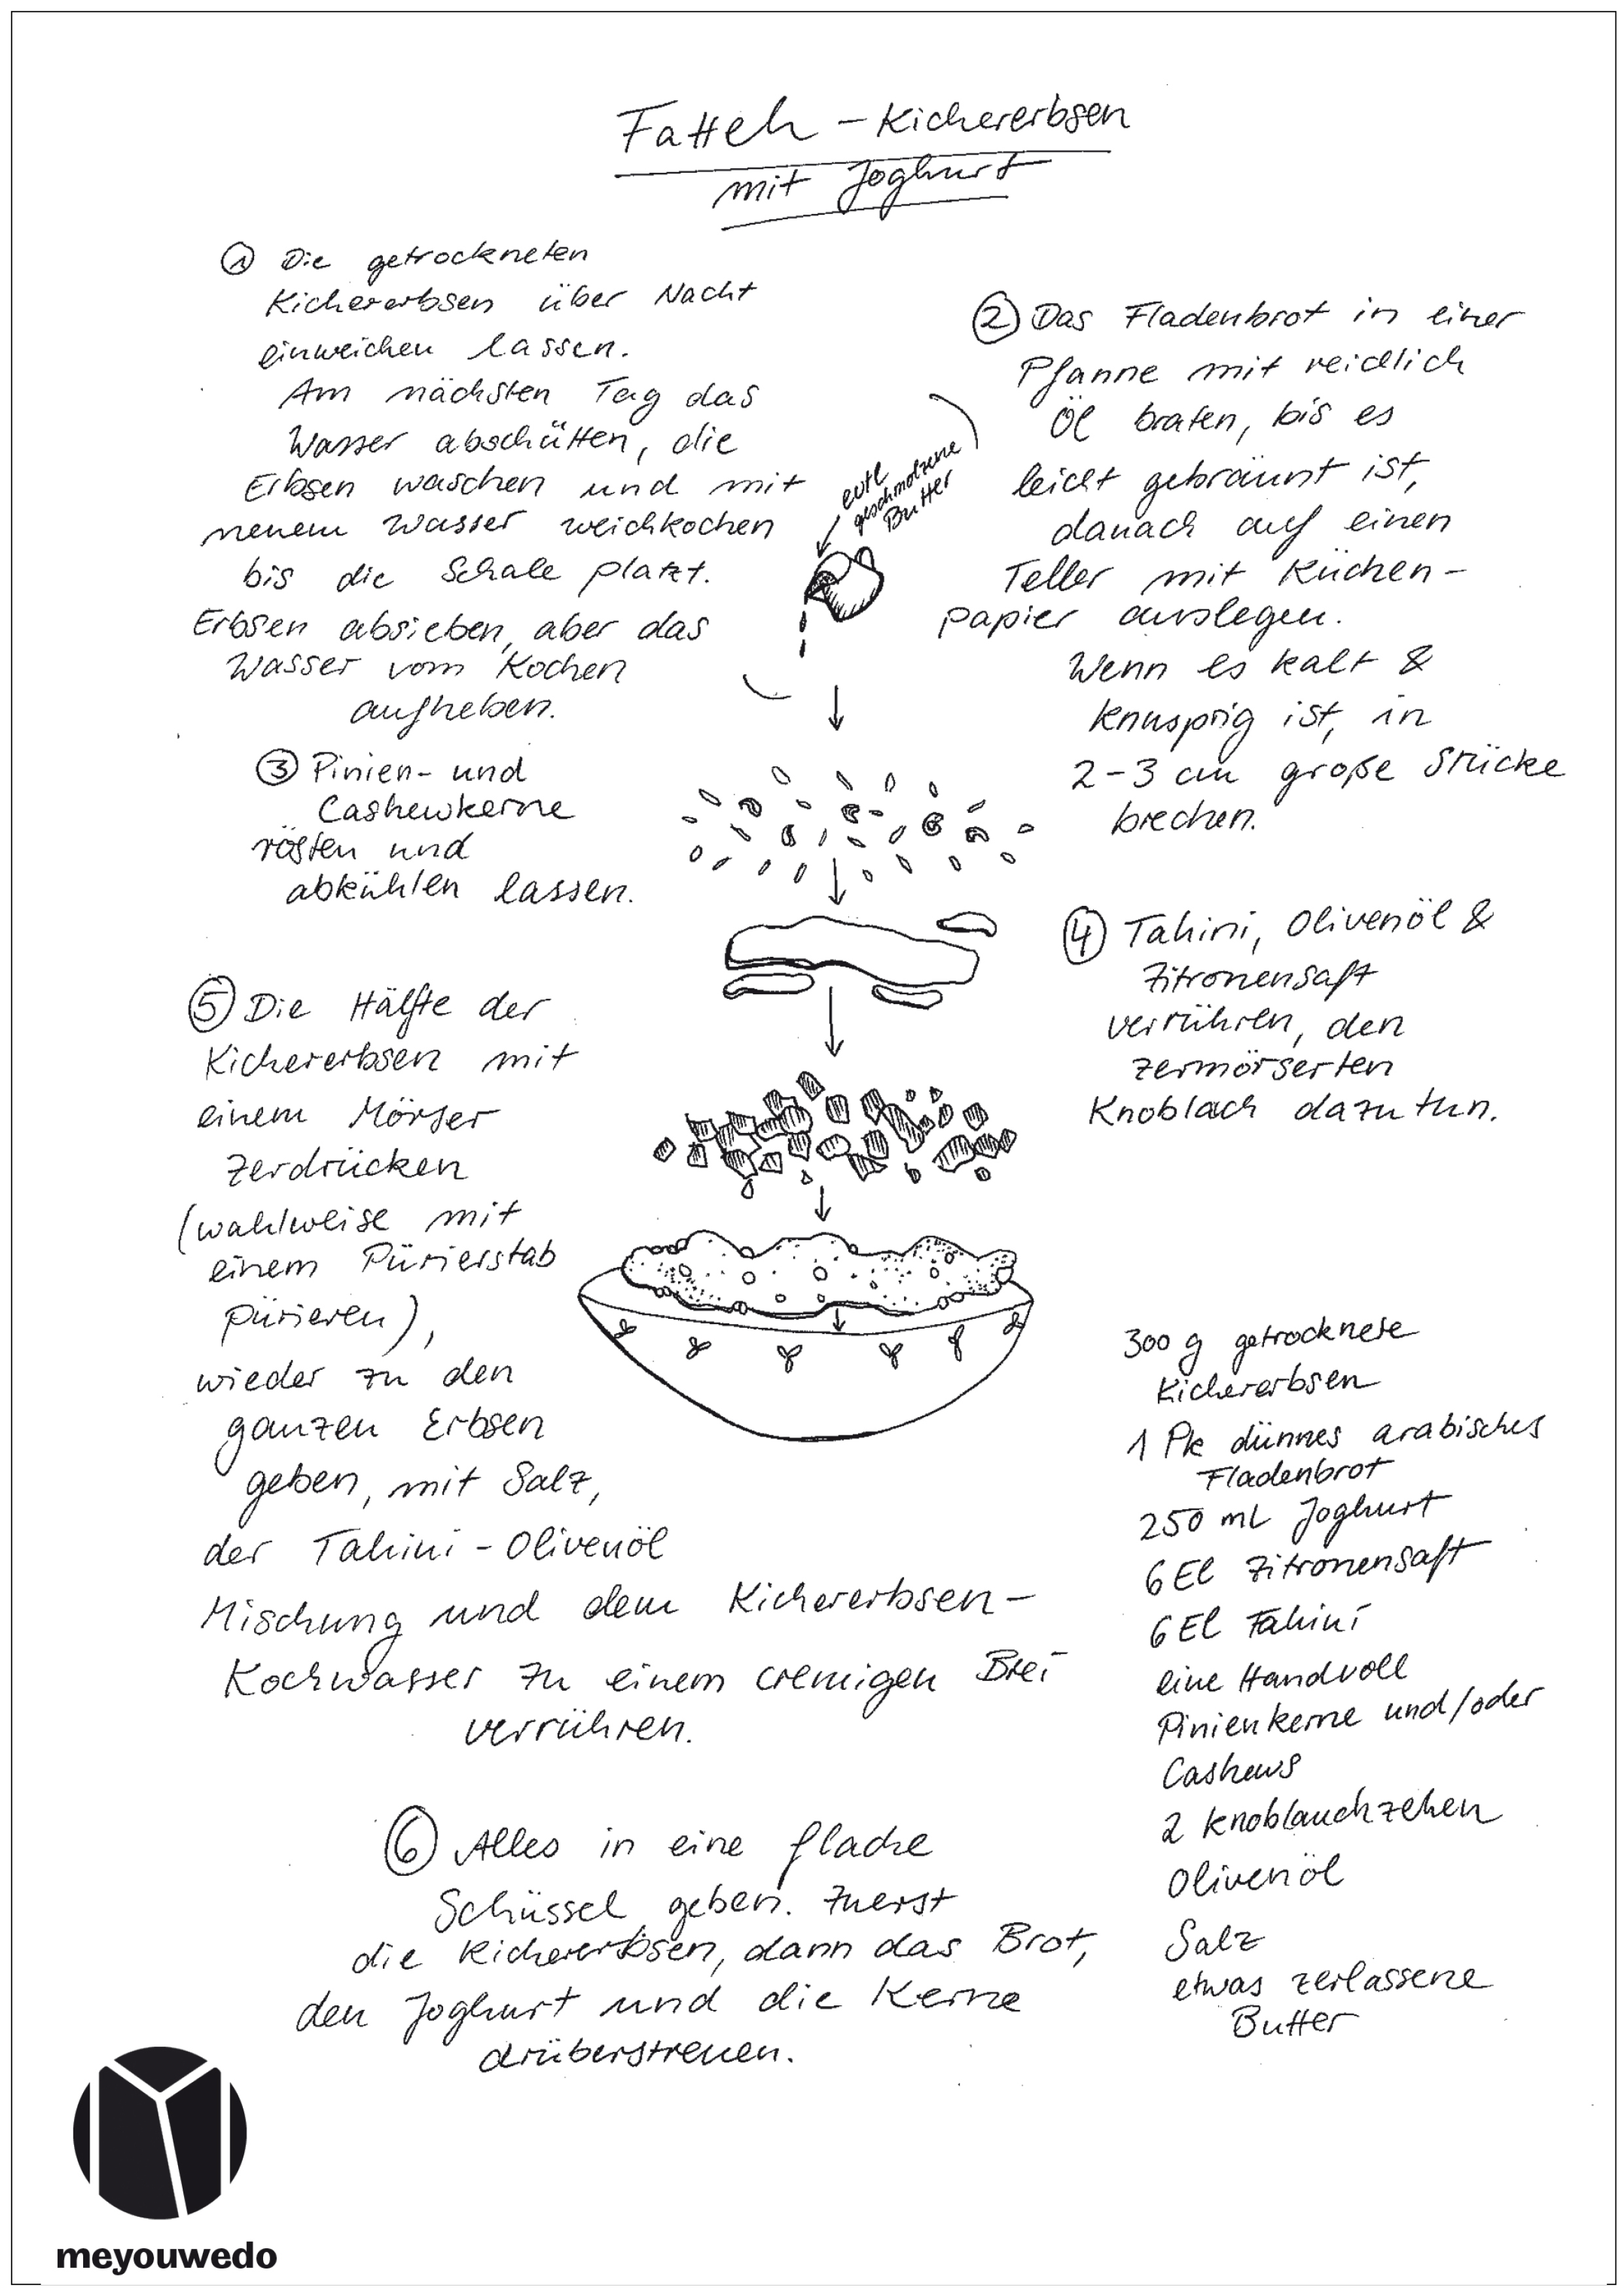 Fatteh - Kichererbsen
mit Joghurt
① Die getrockneten
Kichererbsen über Nacht
einweichen lassen.
Am nächsten Tag das
Wasser abschütten, die
Erbsen waschen und mit
neuem Wasser weichkochen
bis die Schale platzt.
Erbsen absieben, aber das
Wasser vom Kochen
aufheben.
② Das Fladenbrot in einer
Pfanne mit reichlich
Öl braten, bis es
leicht gebräunt ist,
danach auf einen
Teller mit Küchen-
papier auslegen.
Wenn es kalt &
knusprig ist, in
2-3 cm große Stücke
brechen.
evtl
geschmolzene
Butter
③ Pinien- und
Cashewkerne
rösten und
abkühlen lassen.
④ Tahini, Olivenöl &
Zitronensaft
verrühren, den
zermörserten
Knoblach dazutun.
⑤ Die Hälfte der
Kichererbsen mit
einem Mörser
zerdrücken
(wahlweise mit
einem Pürierstab
pürieren),
wieder zu den
ganzen Erbsen
geben, mit Salz,
der Tahini-Olivenöl
Mischung und dem Kichererbsen-
Kochwasser zu einem cremigen Brei
verrühren.
⑥ Alles in eine flache
Schüssel geben. Zuerst
die Kichererbsen, dann das Brot,
den Joghurt und die Kerne
drüberstreuen.
300 g getrocknete
Kichererbsen
1 Pk dünnes arabisches
Fladenbrot
250 mL Joghurt
6 El Zitronensaft
6 El Tahini
eine Handvoll
Pinienkerne und/oder
Cashews
2 Knoblauchzehen
Olivenöl
Salz
etwas zerlassene
Butter
meyouwedo